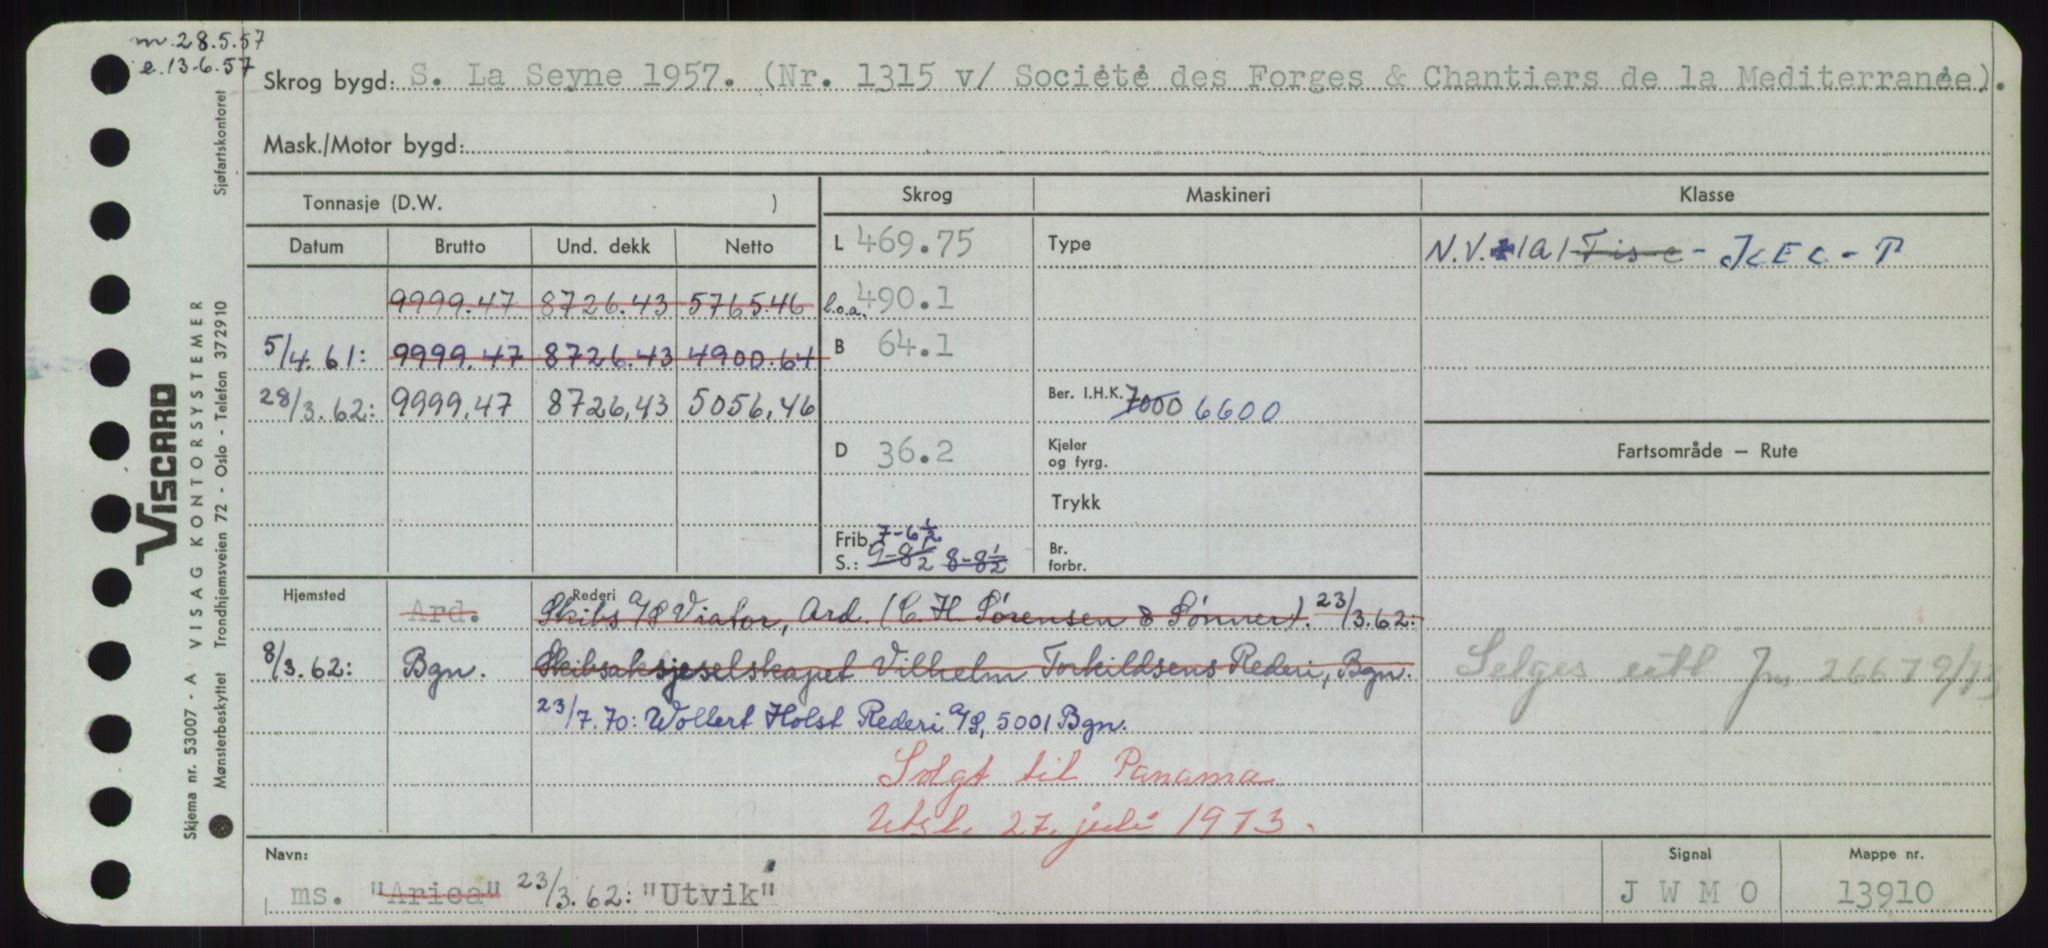 m. 28.5.57
e. 13-6.57
Skrog bygd: S. La Seyne 1957. (Nr. 1315 v/ Société des Forges & Chantiers de la Mediterranée).
Mask./Motor bygd:
Tonnasje (D.W. )
Skrog Maskineri Klasse
Datum Brutto Und. dekk Netto
L 469.75 Type N.V. 1A1 - ICE C - P
9999.47 8726.43 5765.46 l.o.a. 490.1
5/4.61: 9999.47 8726.43 4900.64 B 64.1
28/3.62: 9999.47 8726,43 5056,46 Ber. I.H.K. 7000 6600
D 36.2 Kjeler og fyrg. Fartsområde — Rute
Trykk
Frib. 7-6½
S.: 9-8½ 8-8½ Br. forbr.
Hjemsted Rederi
Ard. Skibs A/S Viator, Ard. (C. H. Sørensen & Sønner). 23/3.62:
8/3.62: Bgn. Skibsaksjeselskapet Vilhelm Torkildsens Rederi, Bgn.
Selges utl. Jnr 2667 9/73
23/7.70: Wollert Holst Rederi A/S, 5001 Bgn.
Solgt til Panama
Utsl. 27. juli 1973.
Navn: Signal Mappe nr.
ms. "Arica" 23/3.62: "Utvik" J W M O 13910
Viscard
VISAG KONTORSYSTEMER
Skjema nr. 53007 - A
Mønsterbeskyttet Trondhjemsveien 72 - Oslo - Telefon 372910 Sjøfartskontoret